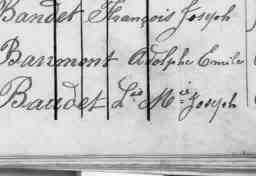 Bandet François Joseph
Baumont Adolphe Emile
Baudet Ls Mie Joseph